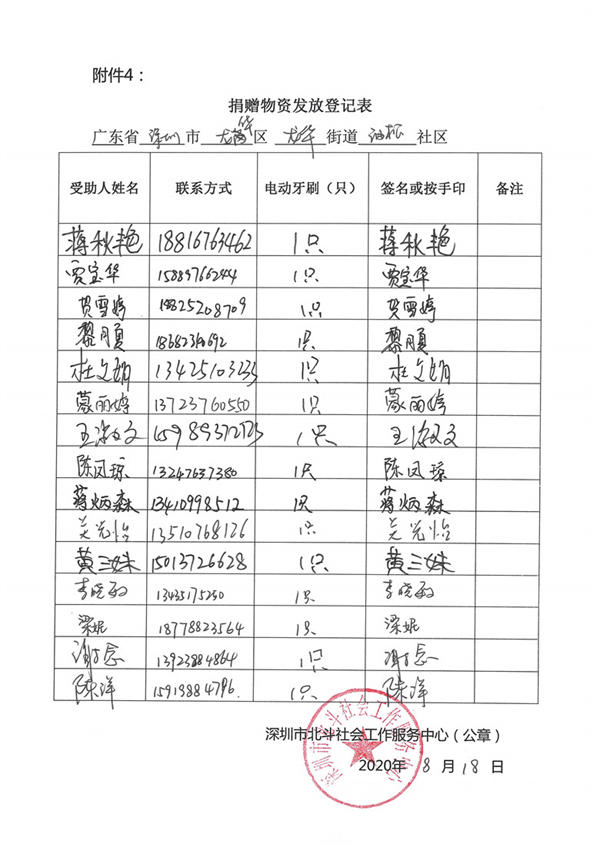 附件4：
捐赠物资发放登记表
广东省 深圳 市 龙华 区 龙华 街道 油松 社区
受助人姓名 联系方式 电动牙刷（只） 签名或按手印 备注
蒋秋艳 18816763462 1只 蒋秋艳
贾宝华 15889766244 1只 贾宝华
贺雪婷 18825208709 1只 贺雪婷
黎 1只 黎
杜文娟 13425103235 1只 杜文娟
蒙丽婷 13723760550 1只 蒙丽婷
王 文 1只 王 文
陈凤琼 13247637380 1只 陈凤琼
蒋炳森 13410998512 1只 蒋炳森
吴光怡 13510768126 1只 吴光怡
黄三妹 15013726628 1只 黄三妹
李晓 13435175230 1只 李晓
梁妮 18778823564 1只 梁妮
谢念 13923884864 1只 谢念
陈洋 15919884796 1只 陈洋
深圳市北斗社会工作服务中心（公章）
2020年 8 月 18 日
深圳市北斗社会工作服务中心